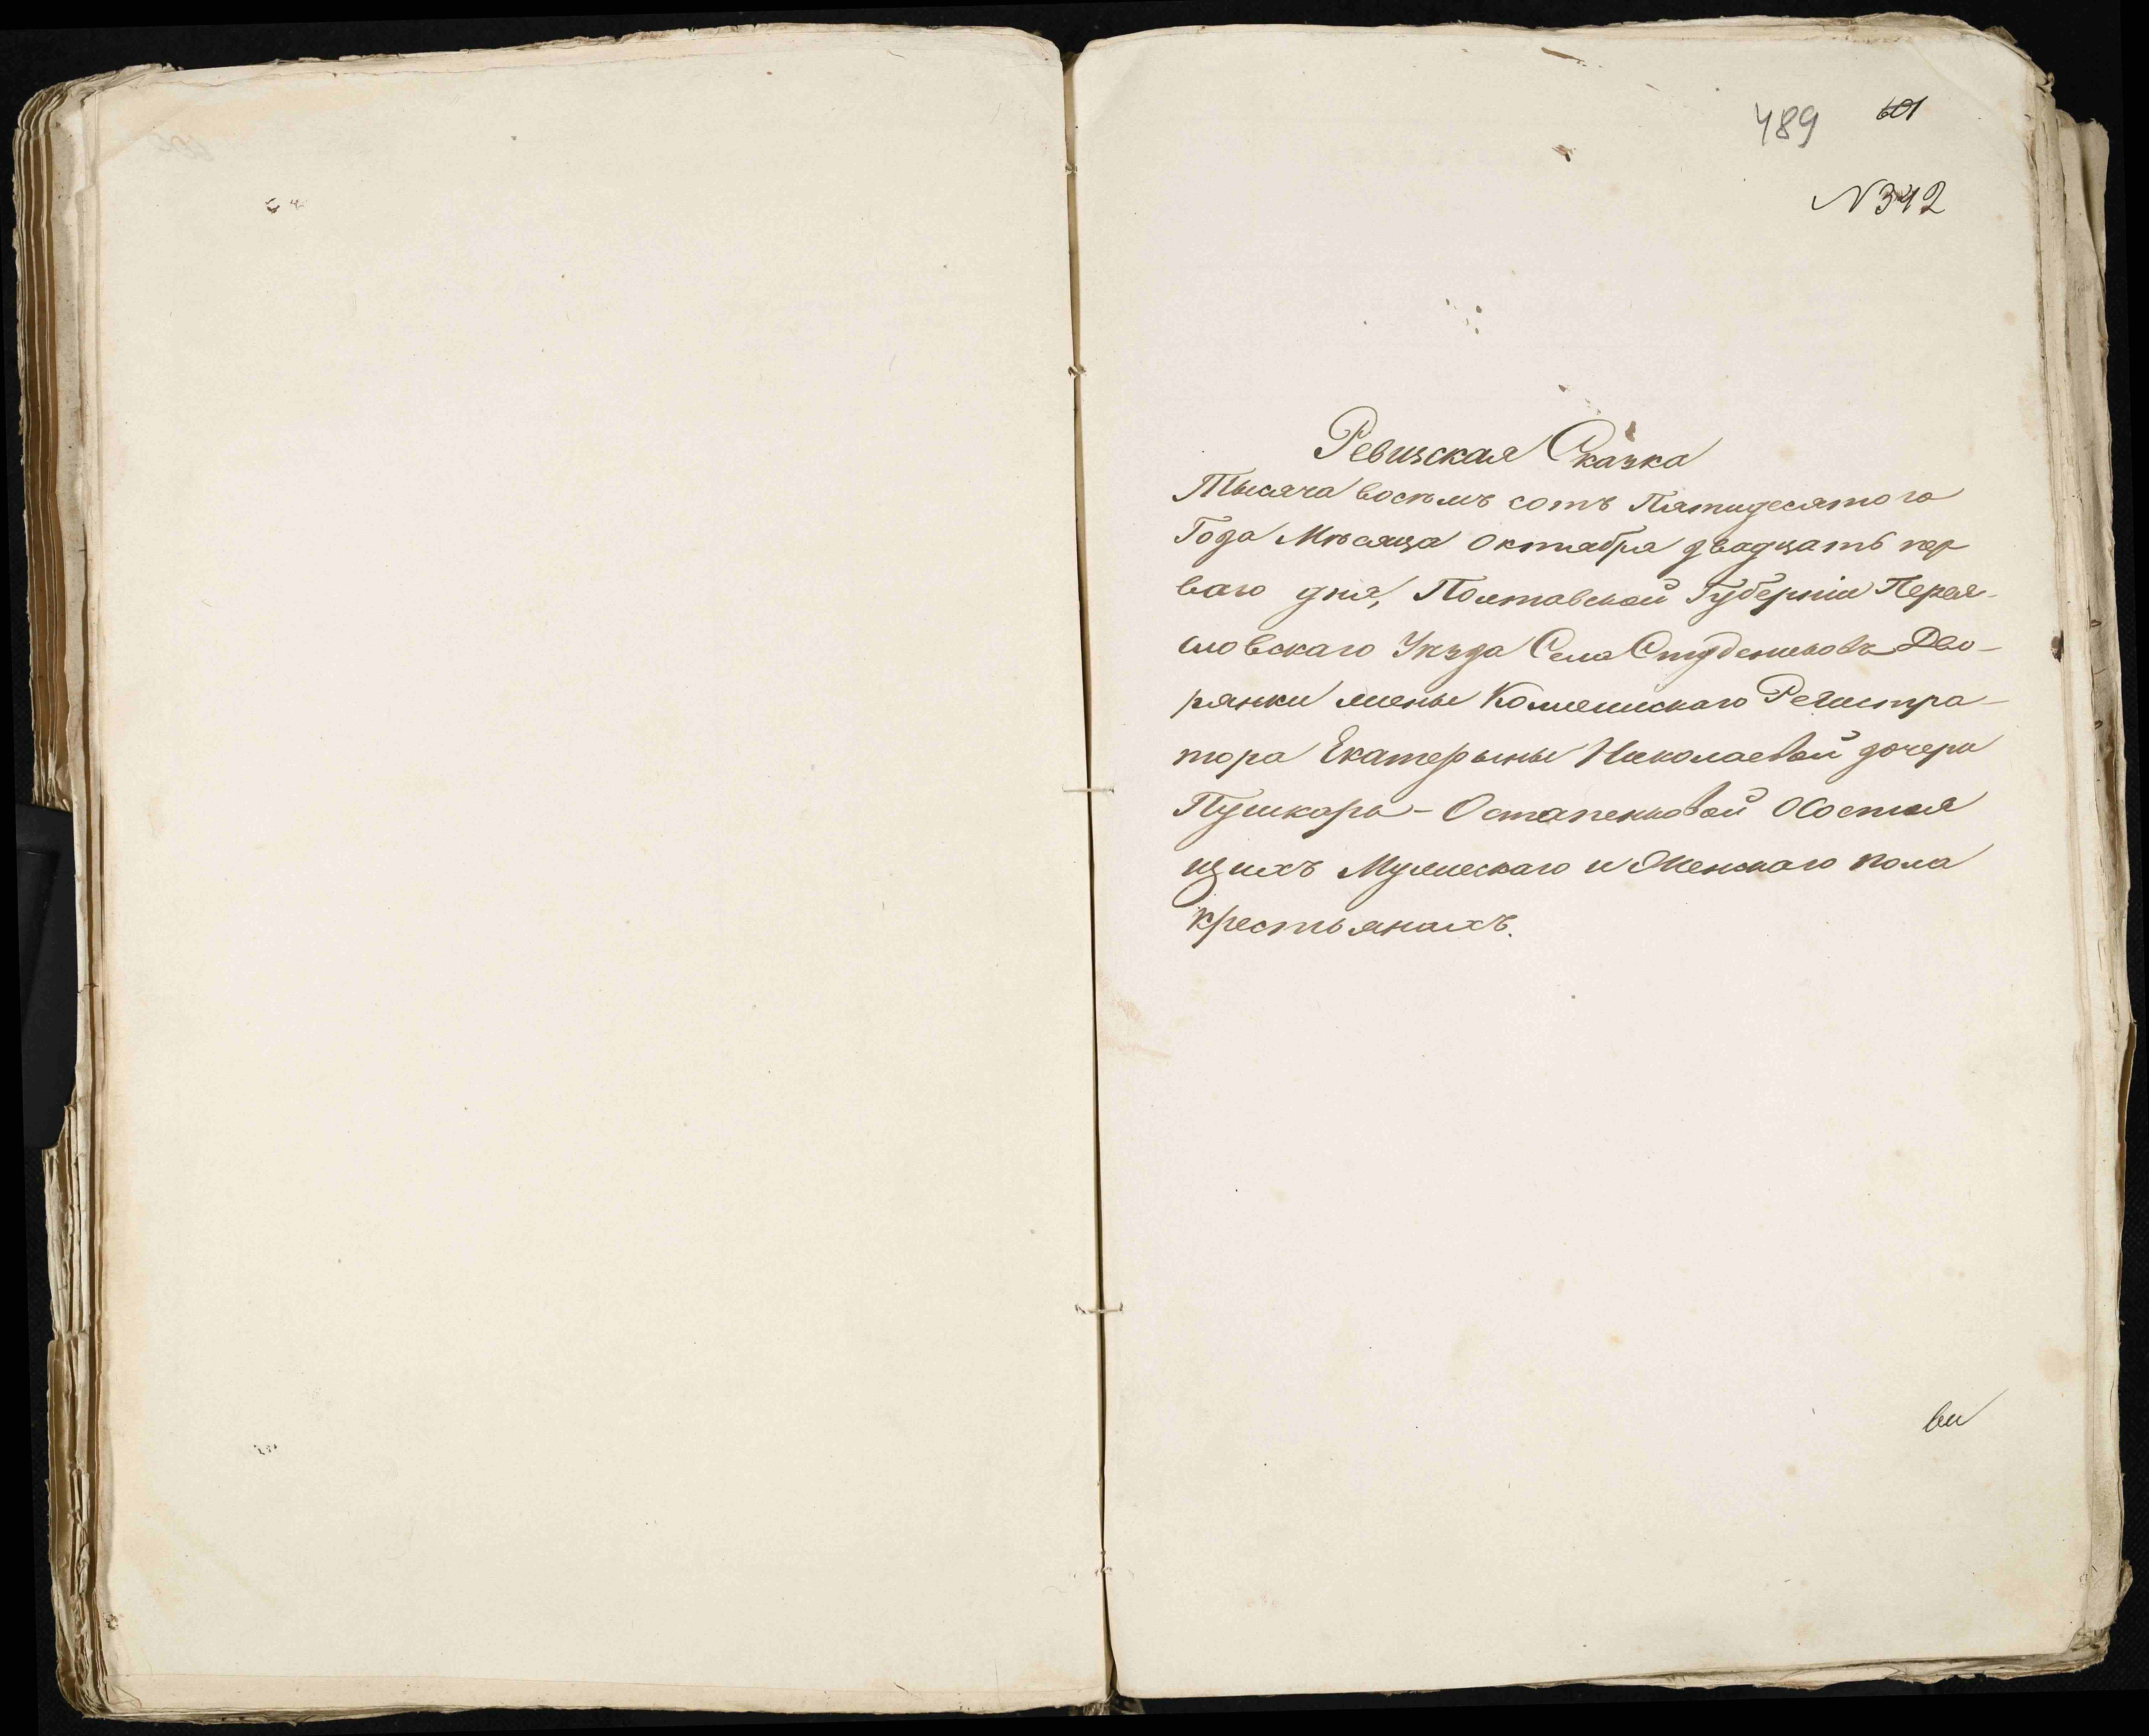 489 601
N 342
Ревизская Сказка
Тысяча восемь сотъ Пятидесятого
Года Мѣсяца Октября двадцать пер
ваго дня, Полтавской Губерніи Перея-
словскаго Уѣзда Села Студениковъ Дво-
рянки жены Колежскаго Регистра-
тора Екатерыны Николаевой дочери
Пушкаря-Остапенковой Осостоя
щихъ Мужескаго и Женскаго пола
крестьянахъ.